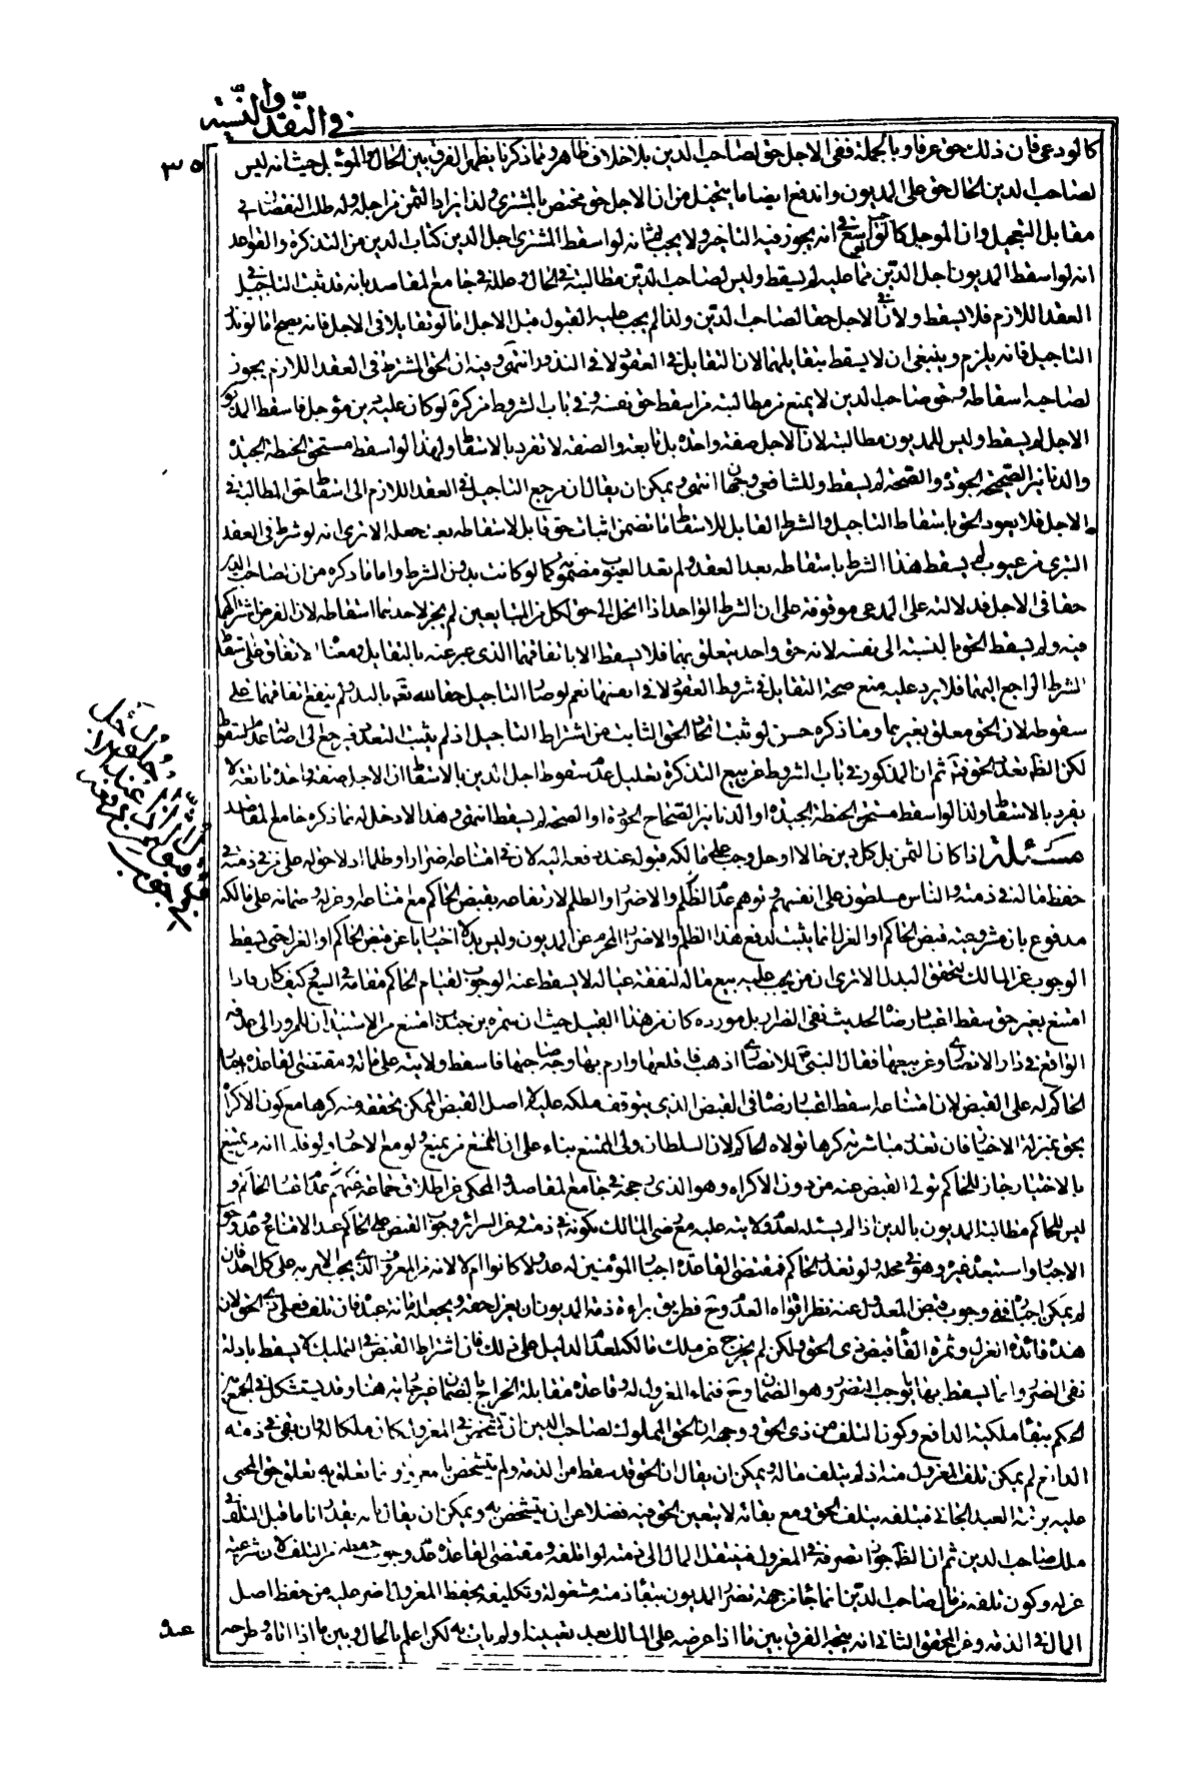 في النقد والنسية
٣٠٥
كالودعي فان ذلك حق عرفا وبالجملة ففي الاجل حق لصاحب الدين بلا خلاف ظاهر ومما ذكرنا يظهر الفرق بين الحال والمؤجل حيث انه ليس
لصاحب الدين الحال حق على المديون واندفع ايضا ما يتخيل من ان الاجل حق مختص بالمشتري ولذا يزاد الثمن من اجله وله طلب النقصان في
مقابل التعجيل وان المؤجل كالواجب الموسع في انه يجوز فيه التاخير ولا يجب ثم انه لو اسقط المشتري اجل الدين ففي كتاب الدين من التذكرة والقواعد
انه لو اسقط المديون اجل الدين مما عليه لم يسقط وليس لصاحب الدين مطالبته في الحال وعلله في جامع المقاصد بانه قد ثبت التاجيل في
العقد اللازم فلا يسقط ولان في الاجل حقا لصاحب الدين ولذا لم يجب عليه القبول قبل الاجل اما لو تقايلا في الاجل فانه يصح اما لو نذر
التاجيل فانه يلزم وينبغي ان لا يسقط بتقايلهما لان التقايل في العقود لا في النذور انتهى وفيه ان الحق المشترط في العقد اللازم يجوز
لصاحبه اسقاطه وحق صاحب الدين لا يمنع من مطالبته من اسقط حق نفسه وفي باب الشروط من كرة لو كان عليه دين مؤجل فاسقط المديون
الاجل لم يسقط وليس للمديون مطالبته لان الاجل صفة واحدة بل تابعة والصفة لا تفرد بالاسقاط ولهذا لو اسقط مستحق الحنطة الجيدة
والدنانير الصحيحة الجودة والصحة لم يسقط وللشافعي وجهان انتهى ويمكن ان يقال ان مرجع التاجيل في العقد اللازم الى اسقاط حق المطالبة في
الاجل فلا يعود الحق باسقاط التاجيل والشرط القابل للاسقاط ما تضمن اثبات حق قابل لاسقاطه بعد جعله الا ترى انه لو شرط في العقد
التبري من عيوب لم يسقط هذا الشرط باسقاطه بعد العقد ولم تعد العيوب مضمونة كما لو كانت بدون الشرط واما ما ذكره من ان لصاحب الدين
حقا في الاجل فدلالته على المدعى موقوفة على ان الشرط الواحد اذا انحل الى حق لكل من المتبايعين لم يجز لاحدهما اسقاطه لان الفرض اشتراكهما
فيه ولم يسقط الحق بالنسبة الى نفسه لانه حق واحد يتعلق بهما فلا يسقط الا باتفاقهما الذي عبر عنه بالتقايل ومعناه الاتفاق على اسقاط
الشرط الراجع اليهما فلا يرد عليه منع صحة التقايل في شروط العقود لا في انفسها نعم لو صار التاجيل حقا لله تعالى بالنذر لم ينفع اتفاقهما على
سقوطه لان الحق معلق بغيرهما وما ذكره حسن لو ثبت اتحاد الحق الثابت من اشتراط التاجيل او لم يثبت التعدد فيرجع الى اصالة عدم السقوط
لكن الظاهر تعدد الحق فتأمل ثم ان المذكور في باب الشروط عن بيع التذكرة تعليل عدم سقوط اجل الدين بالاسقاط بان الاجل صفة واحدة تابعة لا
يفرد بالاسقاط ولذا لو اسقط مستحق الحنطة الجيدة او الدنانير الصحاح الجودة او الصحة لم يسقط انتهى وهذا لا دخل له بما ذكره جامع المقاصد
مسئلة اذا كان الثمن بل كل دين حالا او حل وجب على مالكه قبوله عند دفعه اليه لان في امتناعه ضرارا وظلما اذ لا حق له على من في ذمته في
حفظ ماله في ذمته والناس مسلطون على انفسهم وتوهم عدم الظلم والاضرار والظلم لارتفاعه بقبض الحاكم مع امتناعه وعزله وضمانه على مالكه
مدفوع بان مشروعية قبض الحاكم او العزل انما يثبت لدفع هذا الظلم والاضرار المحرم عن المديون وليس بدلا اختياريا عن قبض الحاكم او العزل حتى يسقط
الوجوب عن المالك لتحقق البدل الا ترى ان من يجب عليه بيع ماله لنفقة عياله لا يسقط عنه الوجوب لقيام الحاكم مقامه في البيع وكيف كان فاذا
امتنع بغير حق سقط اعتبار رضاه لحديث نفي الضرار بل مورده كان من هذا القبيل حيث ان سمرة بن جندب امتنع من الاستيذان للمرور الى عذقه
الواقع في دار الانصاري وعن بيعها فقال النبي للانصاري اذهب فاقلعها وارم بها وجه صاحبها فاسقط ولايته على ماله ومقتضى القاعدة اجبار
الحاكم له على القبض لان امتناعه اسقط اعتبار رضاه في القبض الذي يتوقف ملكه عليه لا اصل القبض الممكن تحققه منه كرها مع كون الاكراه
بحق بمنزلة الاختيار فان تعذر مباشرته كرها تولاه الحاكم لان السلطان ولي الممتنع بناء على ان الممتنع من يمتنع ولو مع الاجبار ولو قلنا انه من يمتنع
بالاختيار جاز للحاكم تولي القبض عنه من دون الاكراه وهو الذي رجحه في جامع المقاصد والمحكي عن اطلاق جماعة عدم اعتبار الحاكم و
ليس للحاكم مطالبة المديون بالدين اذا لم يسئله لعدم ولايته عليه مع رضى المالك بكونه في ذمته وعن السرائر وجوب القبض على الحاكم عند الامتناع وعدم وجوب
الاجبار واستبعده غيره وهو في محله ولو تعذر الحاكم فمقتضى القاعدة اجبار المؤمنين له عدولا كانوا ام لا لانه من المعروف الذي يجب الامر به على كل احد فان
لم يمكن اجباره ففي وجوب قبض العدول عنه نظر اقواه العدم وح فطريق براءة ذمة المديون ان يعزل حقه ويجعله امانة عنده فان تلف فعلى ذي الحق لان
هذه فائدة العزل وثمرة الغاء قبض ذي الحق ولكن لم يخرج عن ملك مالكه لعدم الدليل على ذلك فان اشتراط القبض في التمليك لا يسقط بادلة
نفي الضرر وانما يسقط بها ما يوجب التضرر وهو الضمان وح فنماء المعزول له وقاعدة مقابلة الخراج بالضمان غير جارية هنا وقد يستشكل في الجمع بين
الحكم ببقاء ملكية الدافع وكون التلف من ذي الحق ووجهه ان الحق المملوك لصاحب الدين ان تشخص في المعزول كان ملكا له وان بقي في ذمة
الدافع لم يمكن تلف المعزول منه اذ لم يتلف ماله ويمكن ان يقال ان الحق قد سقط من الذمة ولم يتشخص بالمعزول وانما تعلق به تعلق حق المجني
عليه برقبة العبد الجاني فبتلفه يتلف الحق ومع بقائه لا يتعين الحق فيه فضلا عن ان يتشخص به ويمكن ان يقال بانه يقدر آنا ما قبل التلف في
ملك صاحب الدين ثم ان الظاهر جواز تصرفه في المعزول فينتقل المال الى ذمته لو اتلفه ومقتضى القاعدة عدم وجوب حفظه من التلف لان شرعية
عزله وكون تلفه من مال صاحب الدين انما جاء من جهة تضرر المديون ببقاء ذمته مشغولة وتكليفه بحفظ المعزول اضر عليه من حفظ اصل
المال في الذمة وعن المحقق الثاني انه يتجه الفرق بين ما اذا عرضه على المالك بعد تعيينه ولم يات به لكن اعلم بالحال وبين ما اذا اتاه وطرحه
عنده